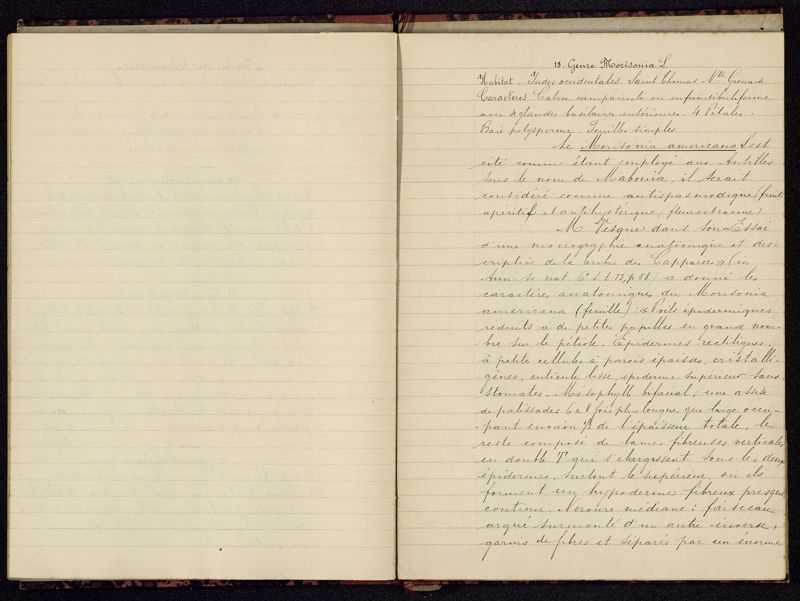 13. Genre Morisonia L.
Habitat. Indes occidentales. Saint Thomas. Nlle Grenade
Caractères Calice campanulé ou infundibuliforme
avec 4 glandes basilaires intérieures. 4 Pétales.
Baie polysperme. Feuilles simples.
Le Morisonia americana L est
cité comme étant employé aux Antilles
sous le nom de Mabouia, il serait
considéré comme antispasmodique (fruit)
apéritif et antihystérique (fleurs et racine)
M. Vesque dans son « Essai
d'une monographie anatomique et des-
criptive de la tribu des Capparées » (in
Ann. sc. nat. 6e s. t. 13, p. 58) a donné les
caractères anatomiques du Morisonia
americana (feuille) : « Poils épidermiques
réduits à de petites papilles en grand nom-
bre sur le pétiole. Epidermes rectilignes
à petites cellules à parois épaisses, cristalli-
gènes, cuticule lisse, épiderme supérieur sans
stomates. Mésophylle bifacial ; une assise
de palissades 6 à 8 fois plus longues que large occu-
pant environ de l'épaisseur totale, le
reste composé de lames fibreuses verticales
en double T qui s'élargissent sous les deux
épidermes, surtout le supérieur, où ils
forment un hypoderme fibreux presque
continu. Nervure médiane : faisceau
arqué surmonté d'un autre inverse,
garnis de fibres et séparés par un énorme